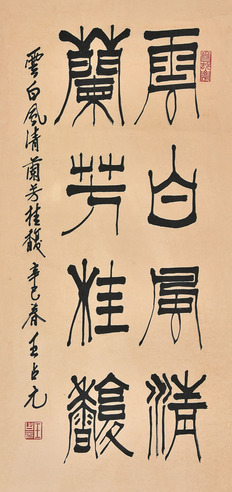 雲白風清
蘭芳桂馥
雲白風清蘭芳桂馥 辛巳春 王占元